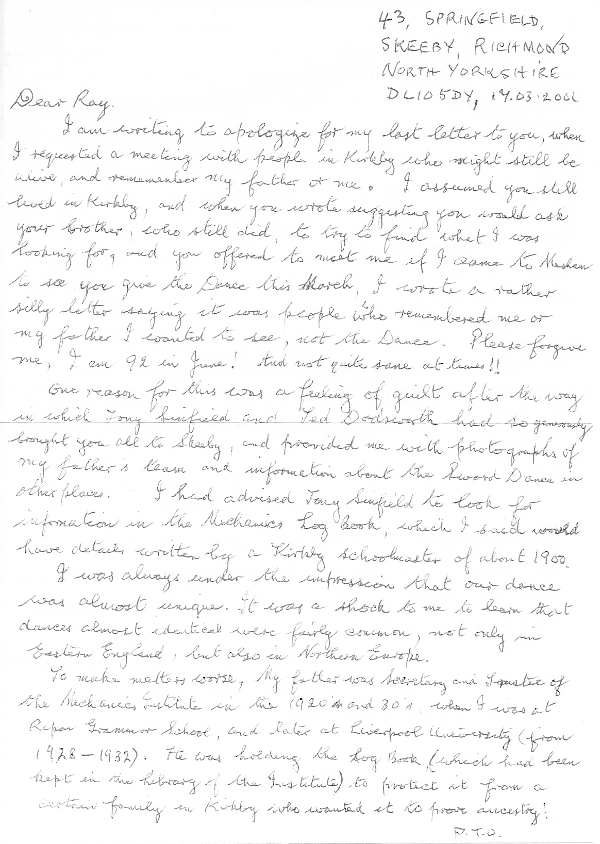 43, SPRINGFIELD,
SKEEBY, RICHMOND
NORTH YORKSHIRE
DL10 5DY, 19.03.2001
Dear Ray.
I am writing to apologize for my last letter to you, when
I requested a meeting with people in Kirkby who might still be
alive, and remember my father or me. I assumed you still
lived in Kirkby, and when you wrote suggesting you would ask
your brother, who still did, to try to find what I was
looking for, and you offered to meet me if I came to Masham
to see you give the Dance this March, I wrote a rather
silly letter saying it was people who remembered me or
my father I wanted to see, not the Dance. Please forgive
me, I am 92 in June! And not quite sane at times!!
One reason for this was a feeling of guilt after the way
in which Tony Sinfield and Ted Dodsworth had so generously
brought you all to Skeeby, and provided me with photographs of
my father's team and information about the Sword Dance in
other places. I had advised Tony Sinfield to look for
information in the Mechanics Log Book, which I said would
have details written by a Kirkby schoolmaster of about 1900.
I was always under the impression that our dance
was almost unique. It was a shock to me to learn that
dances almost identical were fairly common, not only in
Eastern England, but also in Northern Europe.
To make matters worse, My father was secretary and Trustee of
the Mechanics Institute in the 1920's and 30's, when I was at
Ripon Grammar School, and later at Liverpool University (from
1928-1932). He was holding the Log Book (which had been
kept in the library of the Institute) to protect it from a
certain family in Kirkby who wanted it to prove ancestry!
P.T.O.